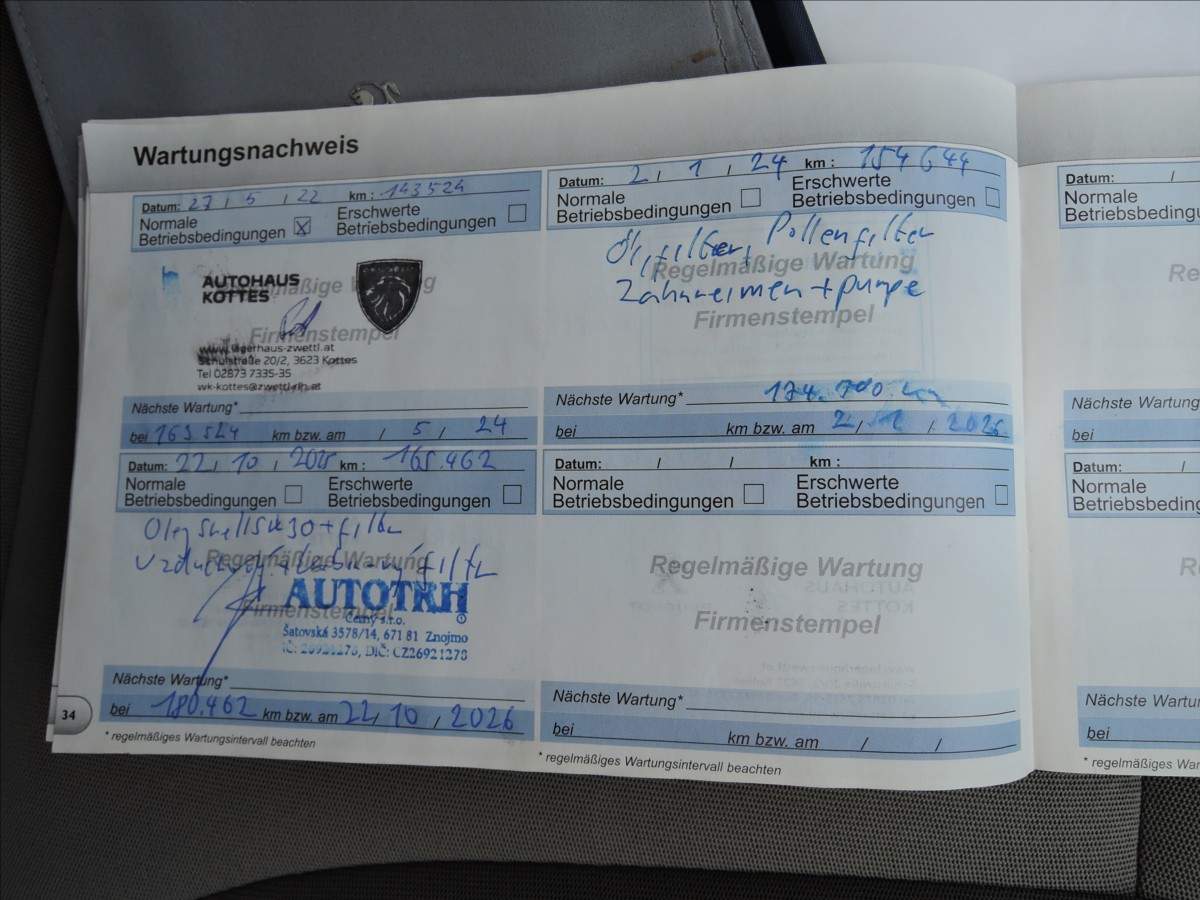 Wartungsnachweis
Datum: 27 / 5 / 22 km : 143524
Normale
Betriebsbedingungen ☒
Erschwerte
Betriebsbedingungen ☐
AUTOHAUS
KOTTES
Regelmäßige Wartung
Firmenstempel
www.lagerhaus-zwettl.at
Schulstraße 20/2, 3623 Kottes
Tel 02873 7335-35
wk-kottes@zwettl.rlh.at
Nächste Wartung*
bei 163524 km bzw. am / 5 / 24
Datum: 2 / 1 / 24 km : 154644
Normale
Betriebsbedingungen ☐
Erschwerte
Betriebsbedingungen ☐
Öl, filter, Pollenfilter
Zahnreimen + pumpe
Regelmäßige Wartung
Firmenstempel
Nächste Wartung* 174.700 km
bei km bzw. am 2 / / 2026
Datum: 22 / 10 / 2025 km : 165.462
Normale
Betriebsbedingungen ☐
Erschwerte
Betriebsbedingungen ☐
Olej Shell 5W30 + filtr
Regelmäßige Wartung
Firmenstempel
AUTOTRH
Černý s.r.o.
Šatovská 3578/14, 671 81 Znojmo
IČ: 26921278, DIČ: CZ26921278
Nächste Wartung*
bei 180.462 km bzw. am 22 / 10 / 2026
* regelmäßiges Wartungsintervall beachten
Datum: / / km :
Normale
Betriebsbedingungen ☐
Erschwerte
Betriebsbedingungen ☐
Regelmäßige Wartung
Firmenstempel
Nächste Wartung*
bei km bzw. am / /
* regelmäßiges Wartungsintervall beachten
34
Datum: /
Normale
Betriebsbedingung
Re
Nächste Wartung
bei
Datum: /
Normale
Betriebsbedingung
Re
Nächste Wartung
bei
* regelmäßiges War